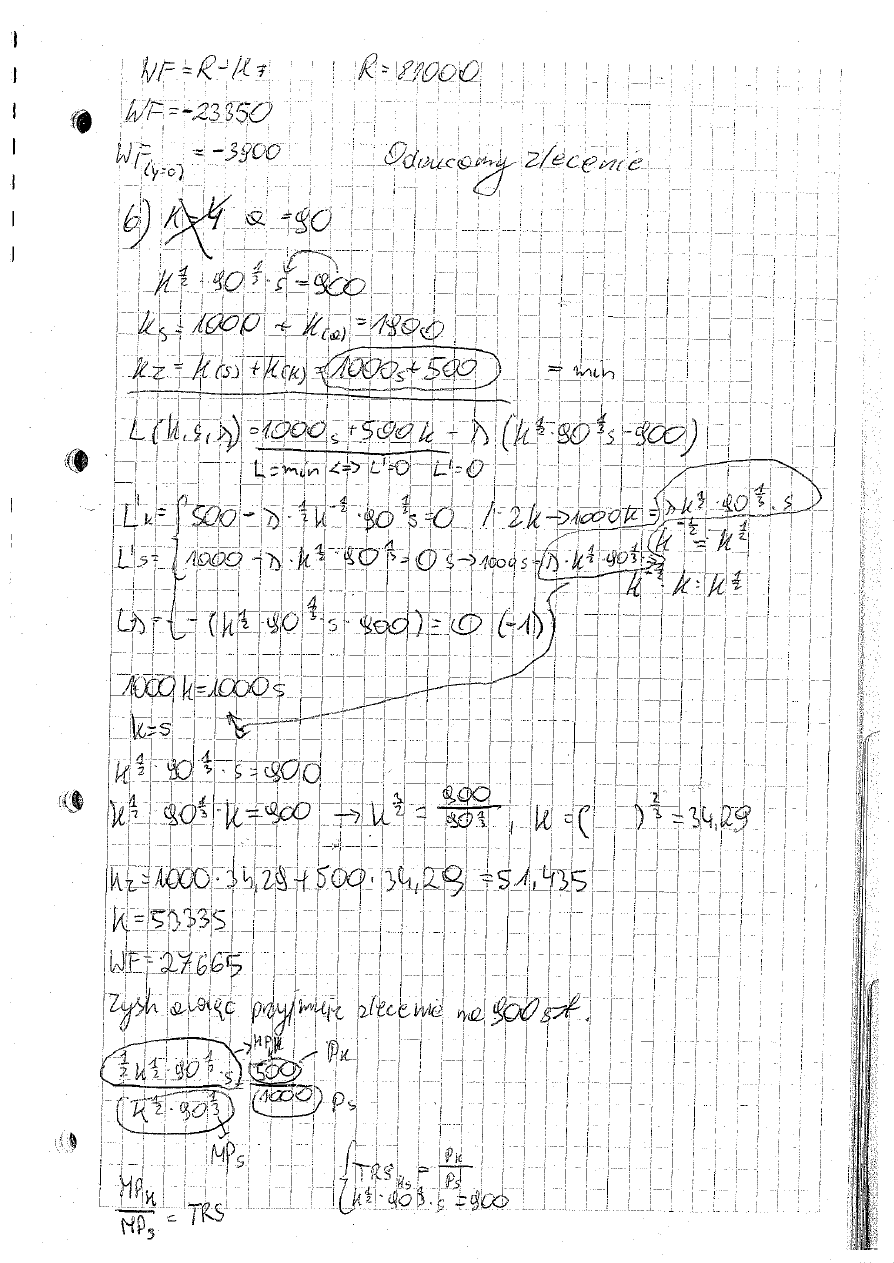 WF = R - K₇ R = 81000
WF = -23350
WF(y=0) = -3900 Odrzucamy zlecenie
6) K=4 Q = 90
K^½ · 90^⅓ · s = 900
Ks = 1000 + K(Q) = 1900
Kz = K(s) + K(K) = 1000s + 500 = min
L(K, s, λ) = 1000s + 500k - λ (K^½ · 90^⅓ s - 900)
L = min <=> L' = 0 L' = 0
L'k = { 500 - λ · ½ K^-½ · 90^⅓ s = 0 /· 2k → 1000k = λ K^½ · 90^⅓ · s
L's = { 1000 - λ · K^½ · 90^⅓ = 0 s → 1000s = λ · K^½ · 90^⅓ s
K^-½ = K^½
K^-½ · K = K^½
Lλ = { - (K^½ · 90^⅓ · s - 900) = 0 (-1)
1000k = 1000s
k = s
K^½ · 90^⅓ · s = 900
K^½ · 90^⅓ · K = 900 → K^3/2 = 900/90^⅓, K = ( )^⅔ = 34,29
Kz = 1000 · 34,29 + 500 · 34,29 = 51,435
K = 53335
WF = 27665
Zysk przyjmuję zlecenie na 900 szt.
½ K^½ · 90^⅓ · s MPK 500 PK
K^½ · 90^⅓ 1000 Ps
MPs
MPK/MPs = TRS
{ TRS Ks = PK/Ps
K^½ · 90^⅓ · s = 900